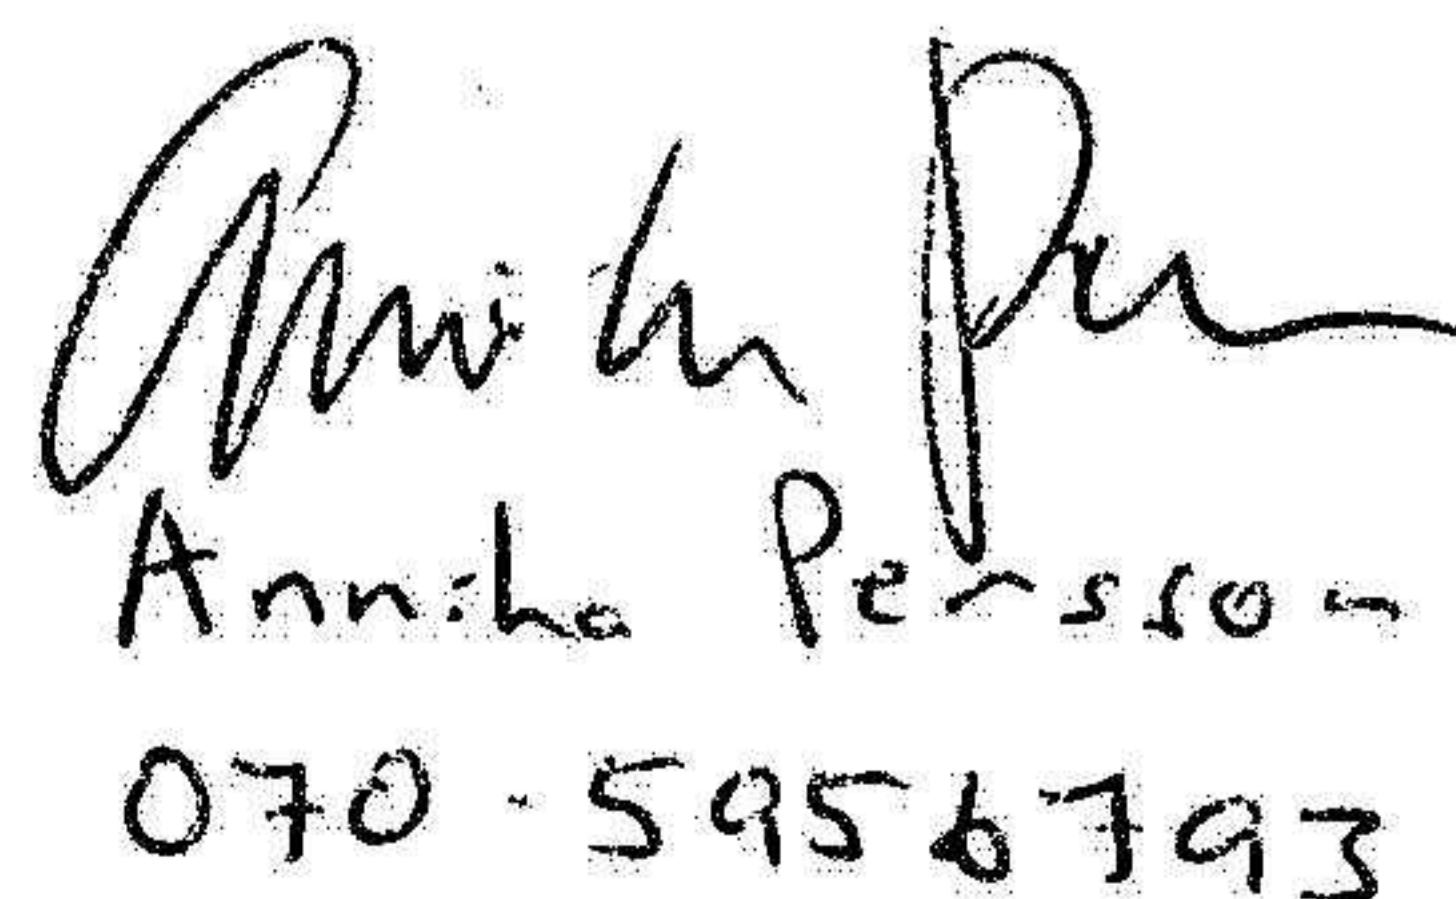 Annika Persson
Annika Persson
070-5956793